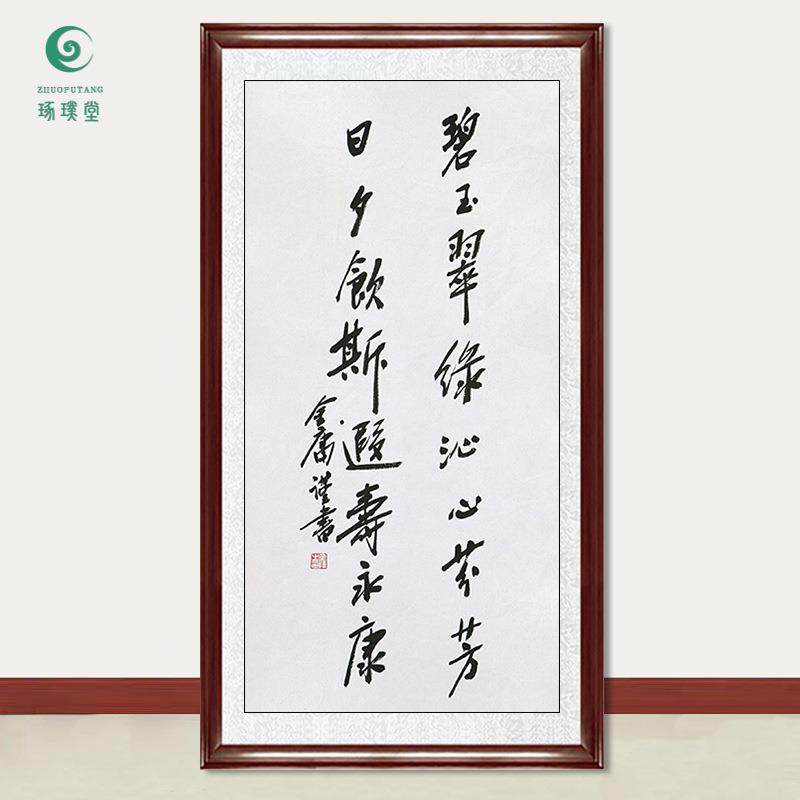 ZHUOPUTANG
琢璞堂
碧玉翠綠沁心芬芳
日夕飲斯遐壽永康
金庸謹書